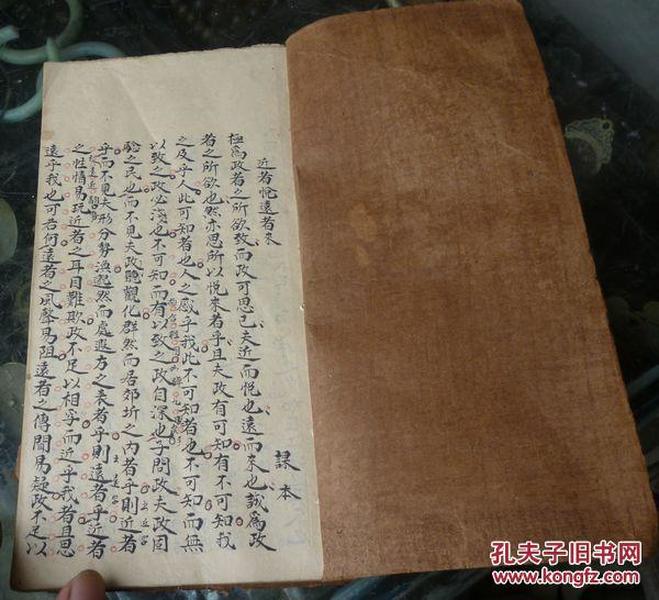 課本
近者悅遠者來
極為政者之所欲致而政可思已夫近而悅也遠而來也誠為政
者之所欲也然亦思所以悅來者乎且夫政有可知有不可知我
之及乎人此可知者也人之感乎我此不可知者也不可知而無
以致之政必淺也不可知而有以致之政自深也子問政夫政固
治之民也而不見夫政觀化群然而居郊圻之內者乎則近者
乎而不見夫形分勢渙趨然而處遐方之表者乎則遠者乎近者
之性情易玩近者之耳目難欺政不足以相孚而近乎我者且思
遠乎我也可若何遠者之風聲易阻遠者之傳聞易疑政不足以
孔夫子旧书网
www.kongfz.com